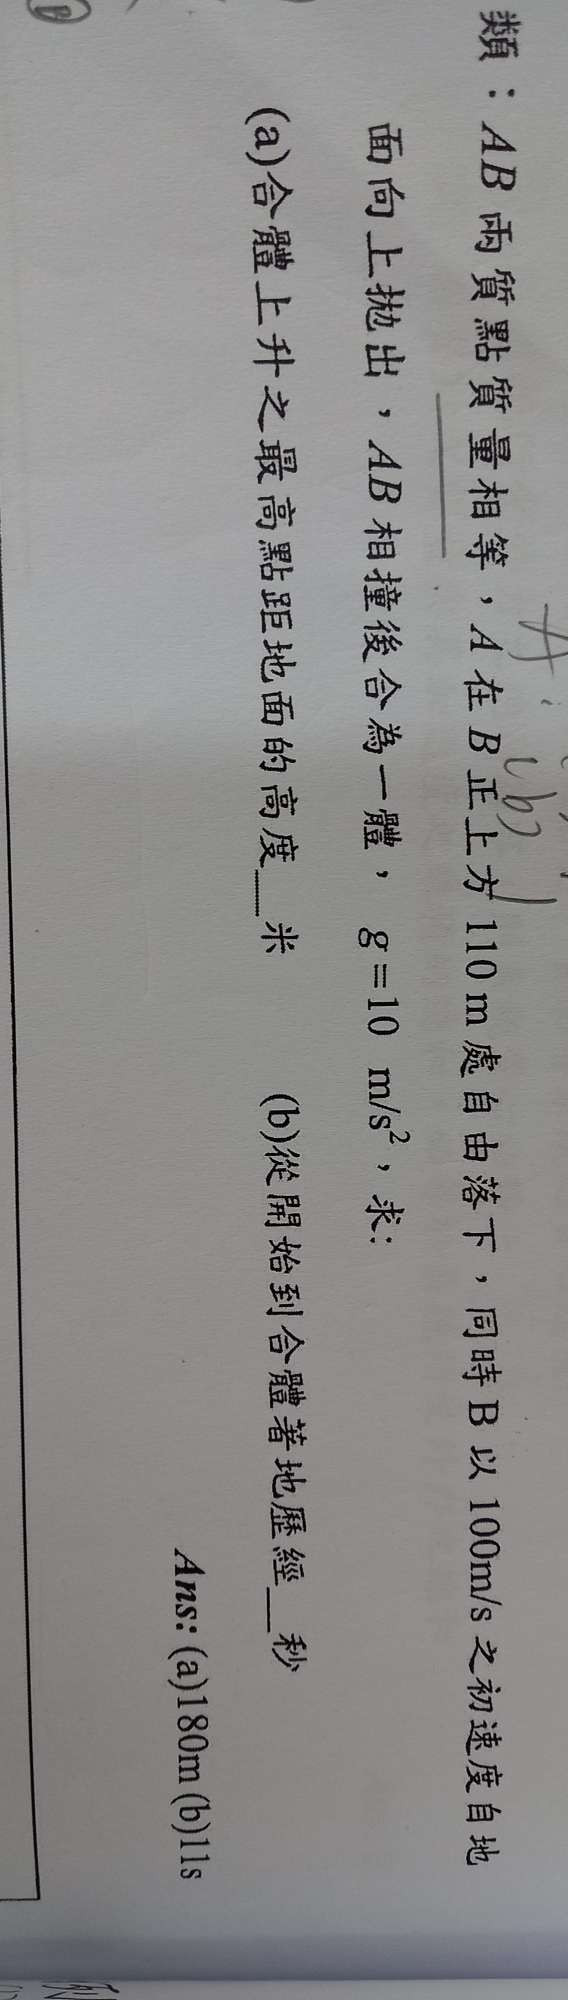 類：AB兩質點質量相等，A在B正上方110 m處自由落下，同時B以100m/s之初速度自地
面向上拋出，AB相撞後合為一體，g=10 m/s²，求:
(a)合體上升之最高點距地面的高度__米 (b)從開始到合體著地歷經__秒
Ans: (a)180m (b)11s